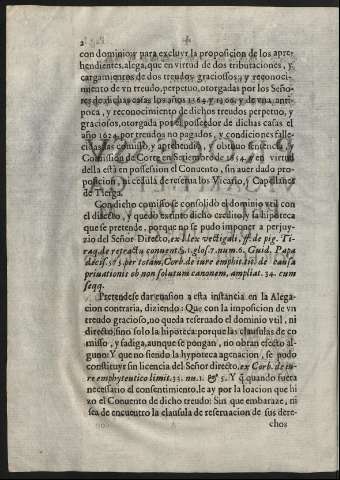 2
con dominio, y para excluyr la proposicion de los apre-
hendientes, alega, que en virtud de dos tributaciones, y
cargamientos de dos treudos graciosos, y reconoci-
miento de vn treudo, perpetuo, otorgadas por los Seño-
res de dichas casas los años 1564. y 1566. y de vna anti-
poca, y reconocimiento de dichos treudos perpetuo, y
graciosos, otorgada por el possedor de dichas casas el
año 1624. por treudos no pagados, y condiciones falle-
cidas las comisso, y aprehendio, y obtuuo sentencia, y
Comission de Corte en Setiembre de 1654. y en virtud
della està en possession el Conuento, sin auer dado pro-
posicion, ni cedula de reserua los Vicario, y Capellanes
de Tierga.
Con dicho comisso se consolidò el dominio vtil con
el directo, y quedò extinto dicho credito, y la hipoteca
que se pretende, porque no se pudo imponer a perjuy-
zio del Señor Directo, ex l. lex vectigali, ff. de pig. Ti-
raq. de retractu conuent. §. 1. glos. 7. num. 6. Guid. Papa
decis. 575. per totam, Corb. de iure emphit. tit. de causa
priuationis ob non solutum canonem, ampliat. 34. cum
seqq.
Pretendese dar euasion a esta instancia en la Alega-
cion contraria, diziendo: Que con la imposicion de vn
treudo gracioso, no queda reseruado el dominio vtil, ni
directo, sino solo la hipoteca: porque las clausulas de co
misso, y fadiga, aunque se pongan, no obran efecto al-
guno: Y que no siendo la hypoteca agenacion, se pudo
constituyr sin licencia del Señor directo, ex Corb. de iu-
re emphyteutico limit. 33. nu. 1. & 5. Y q̃ quando fuera
necessario el consentimiento, le ay por la loacion que hi
zo el Conuento de dicho treudo: Sin que embaraze, ni
sea de encuentro la clausula de reseruacion de sus dere-
chos